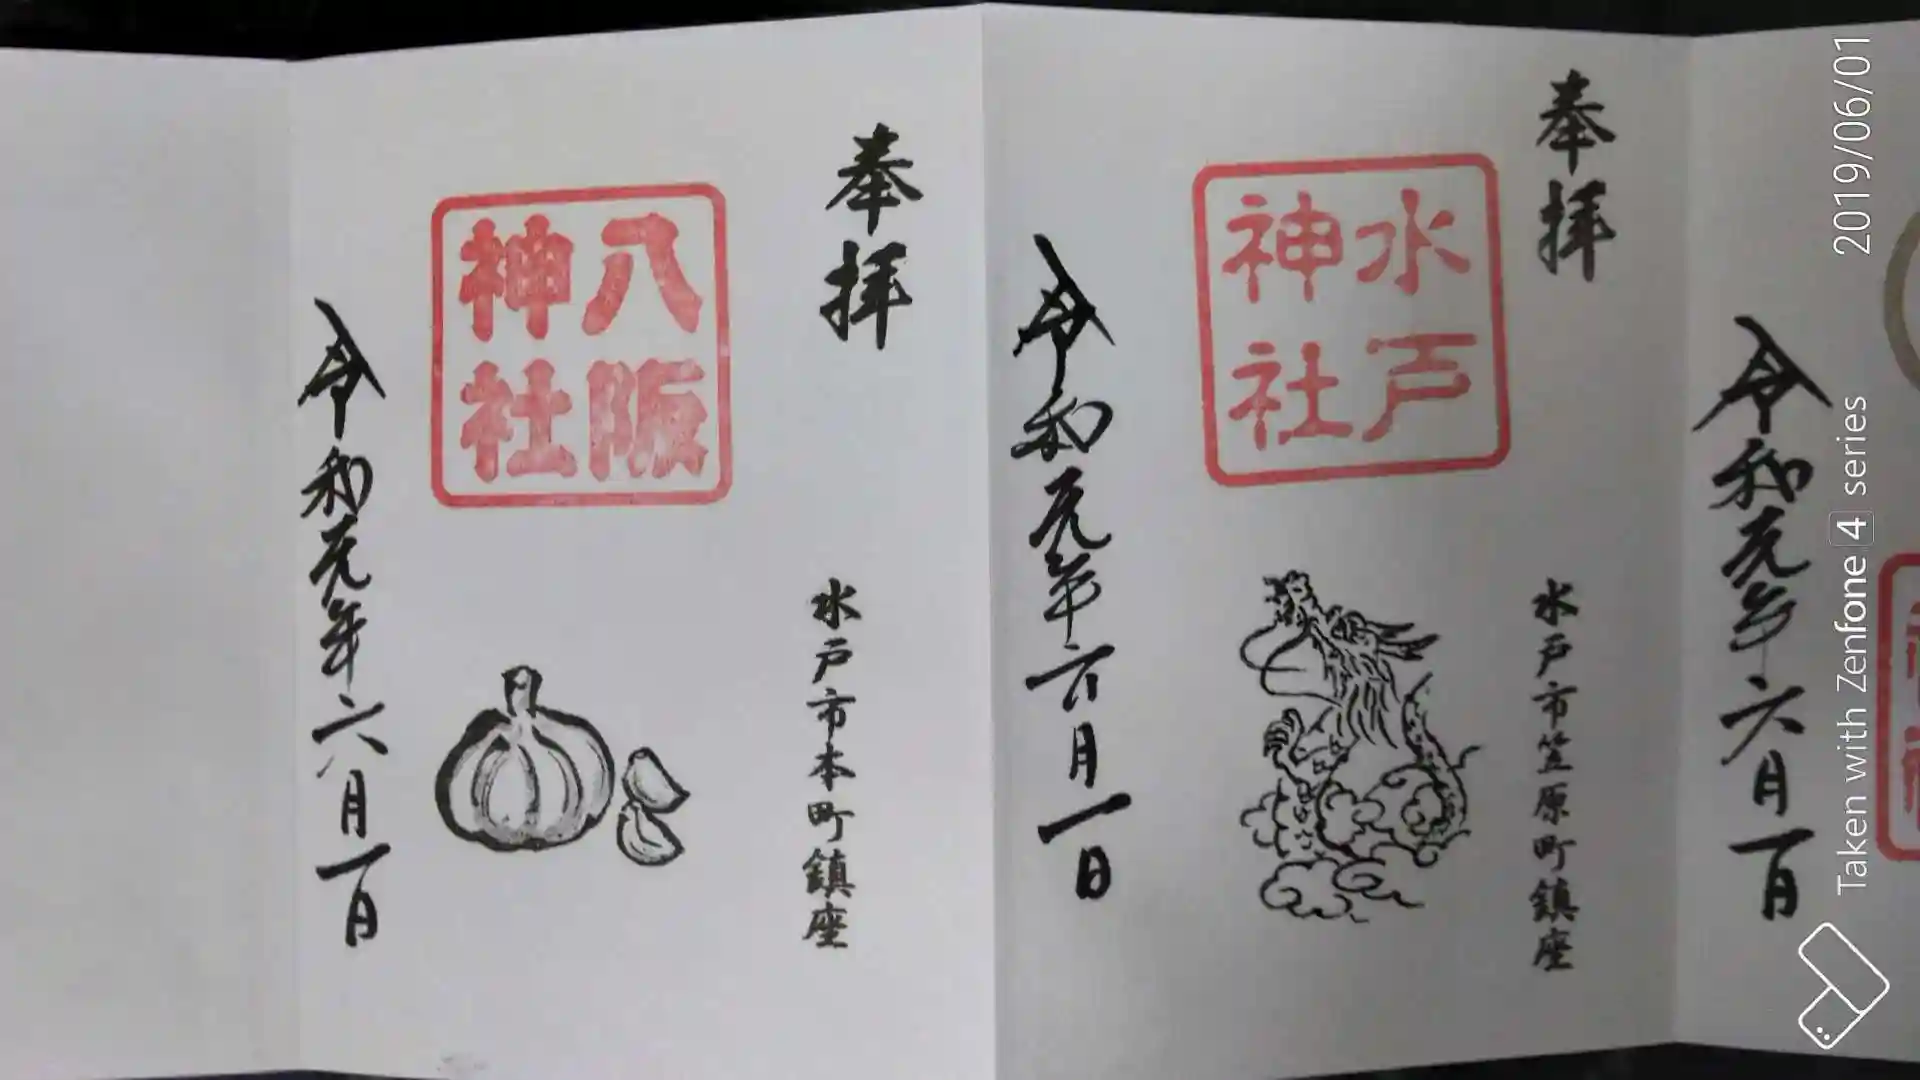 令和元年六月一日
奉拝
水戸
神社
水戸市笠原町鎮座
令和元年六月一日
奉拝
八阪
神社
水戸市本町鎮座
令和元年六月一日
2019/06/01
Taken with Zenfone 4 series